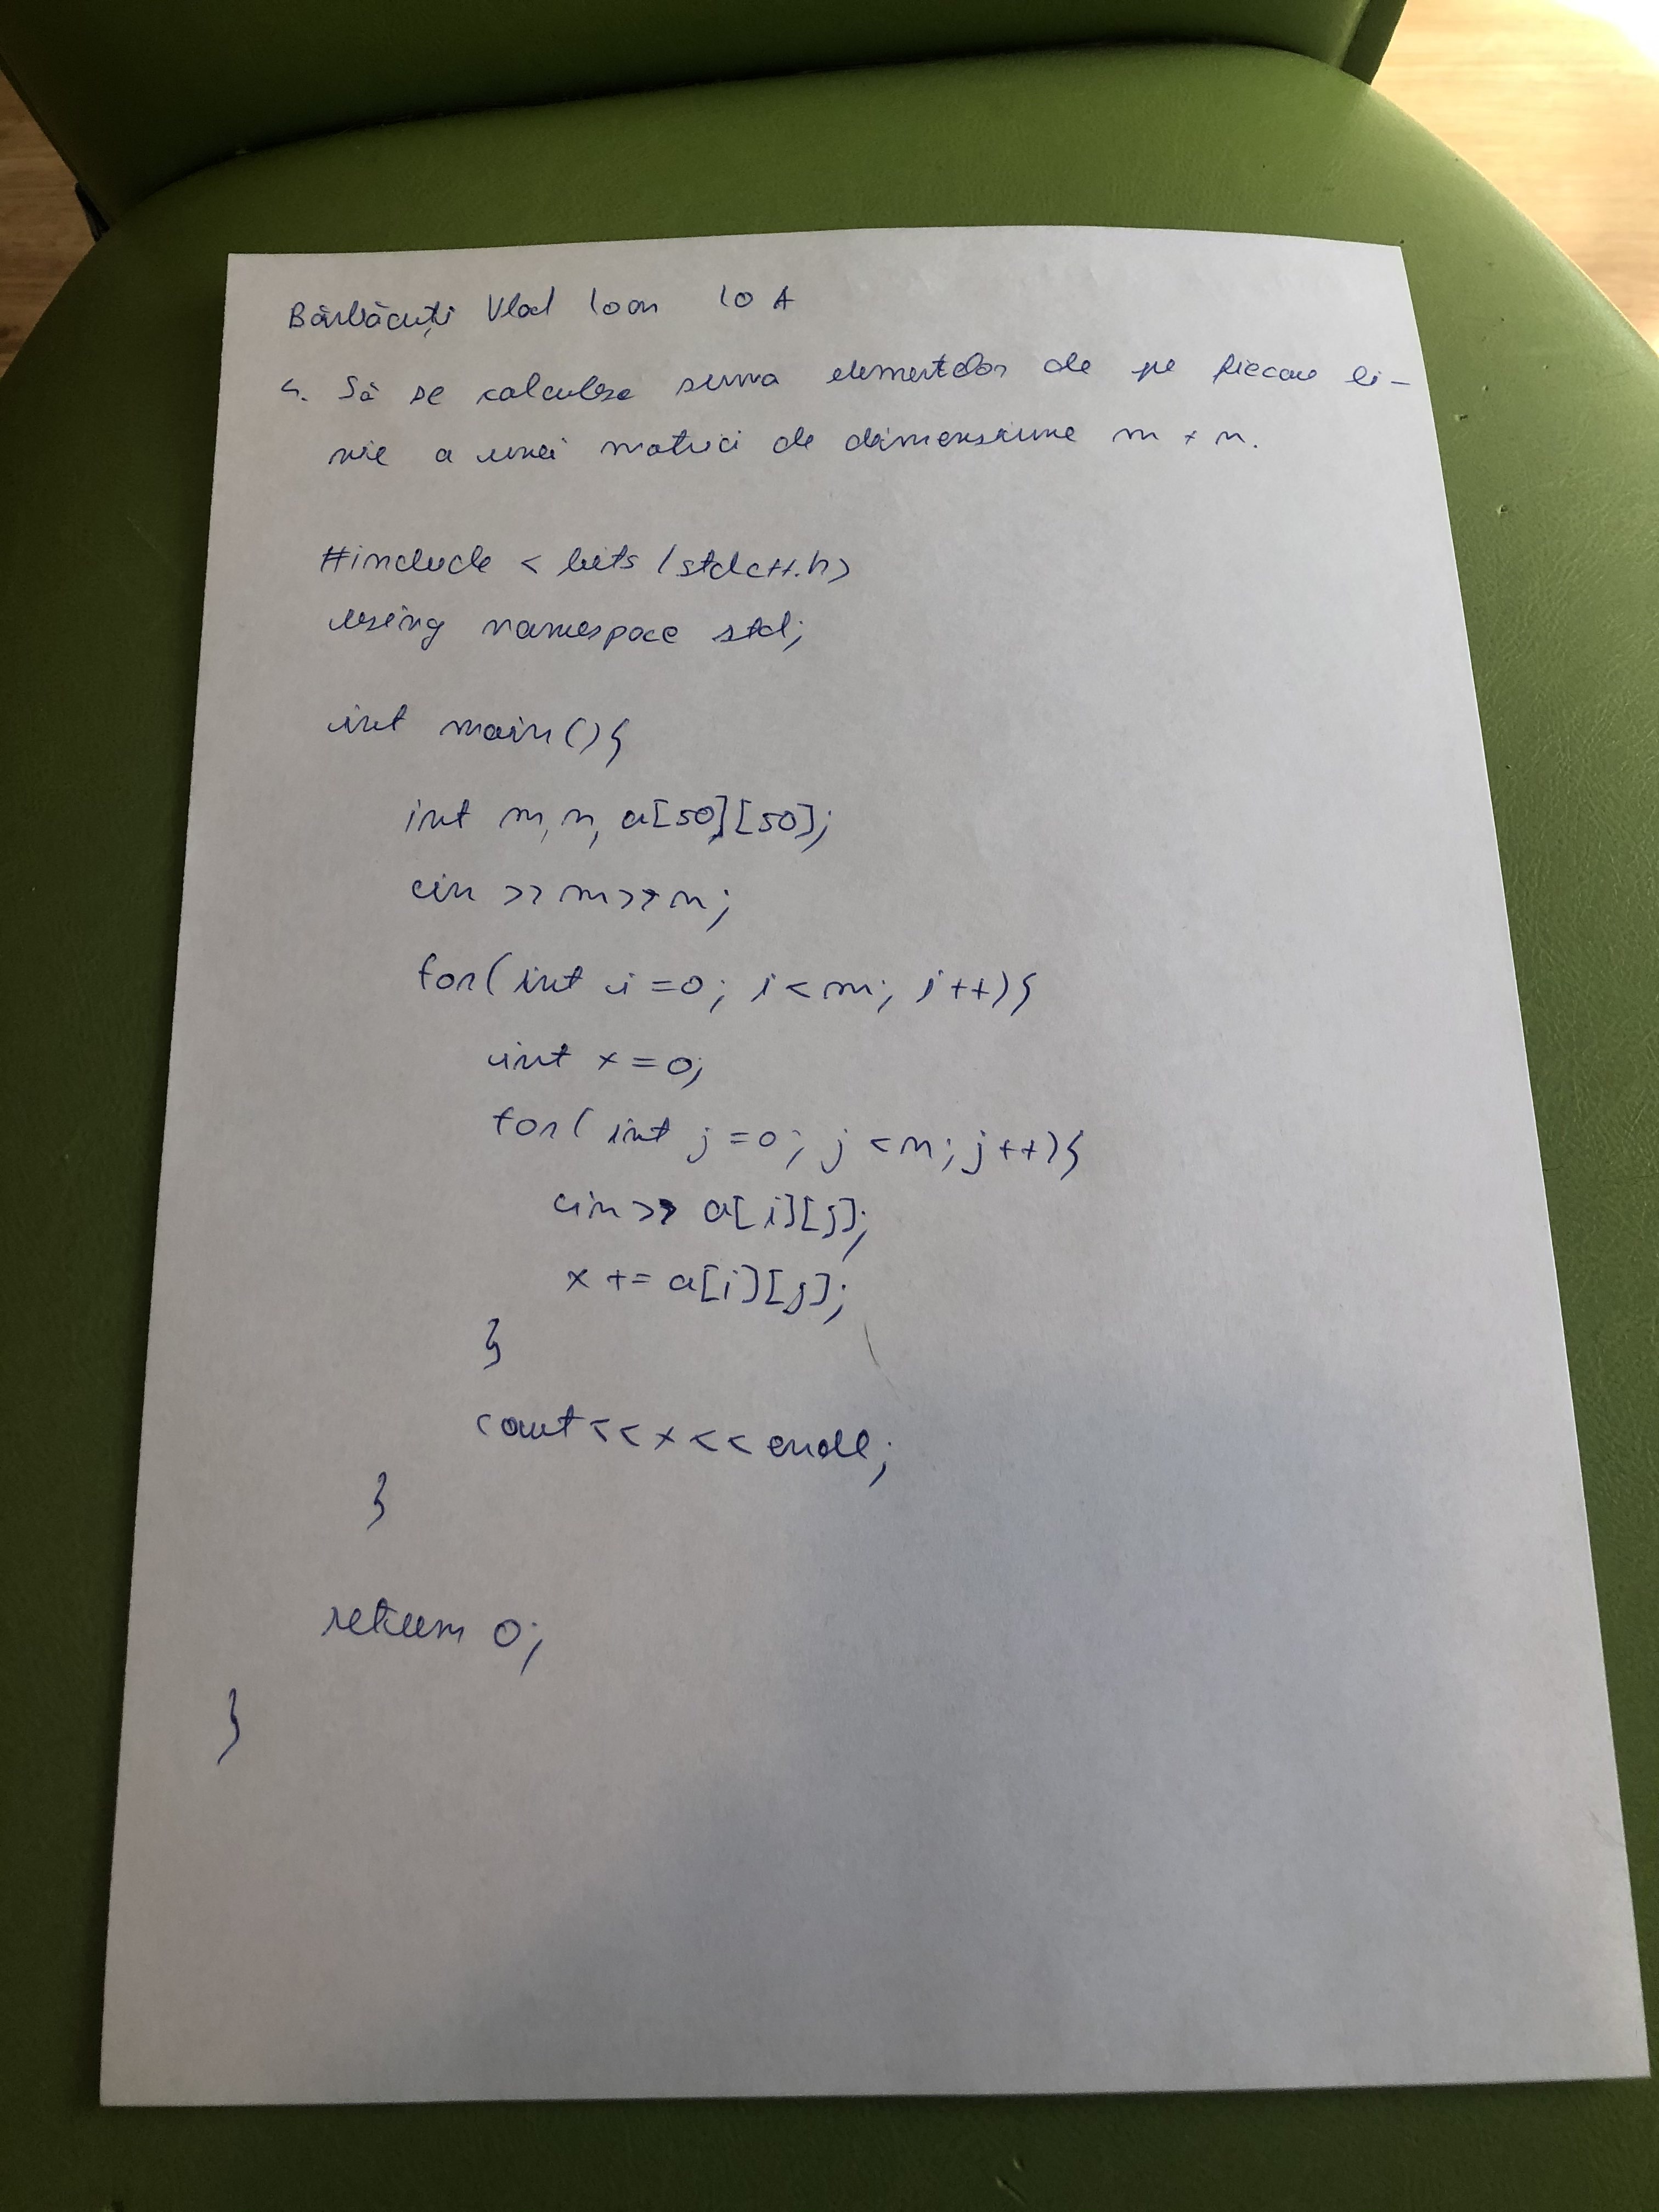 Bărbăcuți Vlad Ioan 10 A
4. Să se calculeze suma elementelor de pe fiecare li-
nie a unei matrici de dimensiune m × n.
#include < bits /stdc++.h>
using namespace std;
int main(){
int m, n, a[50][50];
cin >> m >> n;
for(int i=0; i<m; i++){
int x=0;
for( int j=0; j<n; j++){
cin>> a[i][j];
x += a[i][j];
}
cout<<x<<endl;
}
return 0;
}